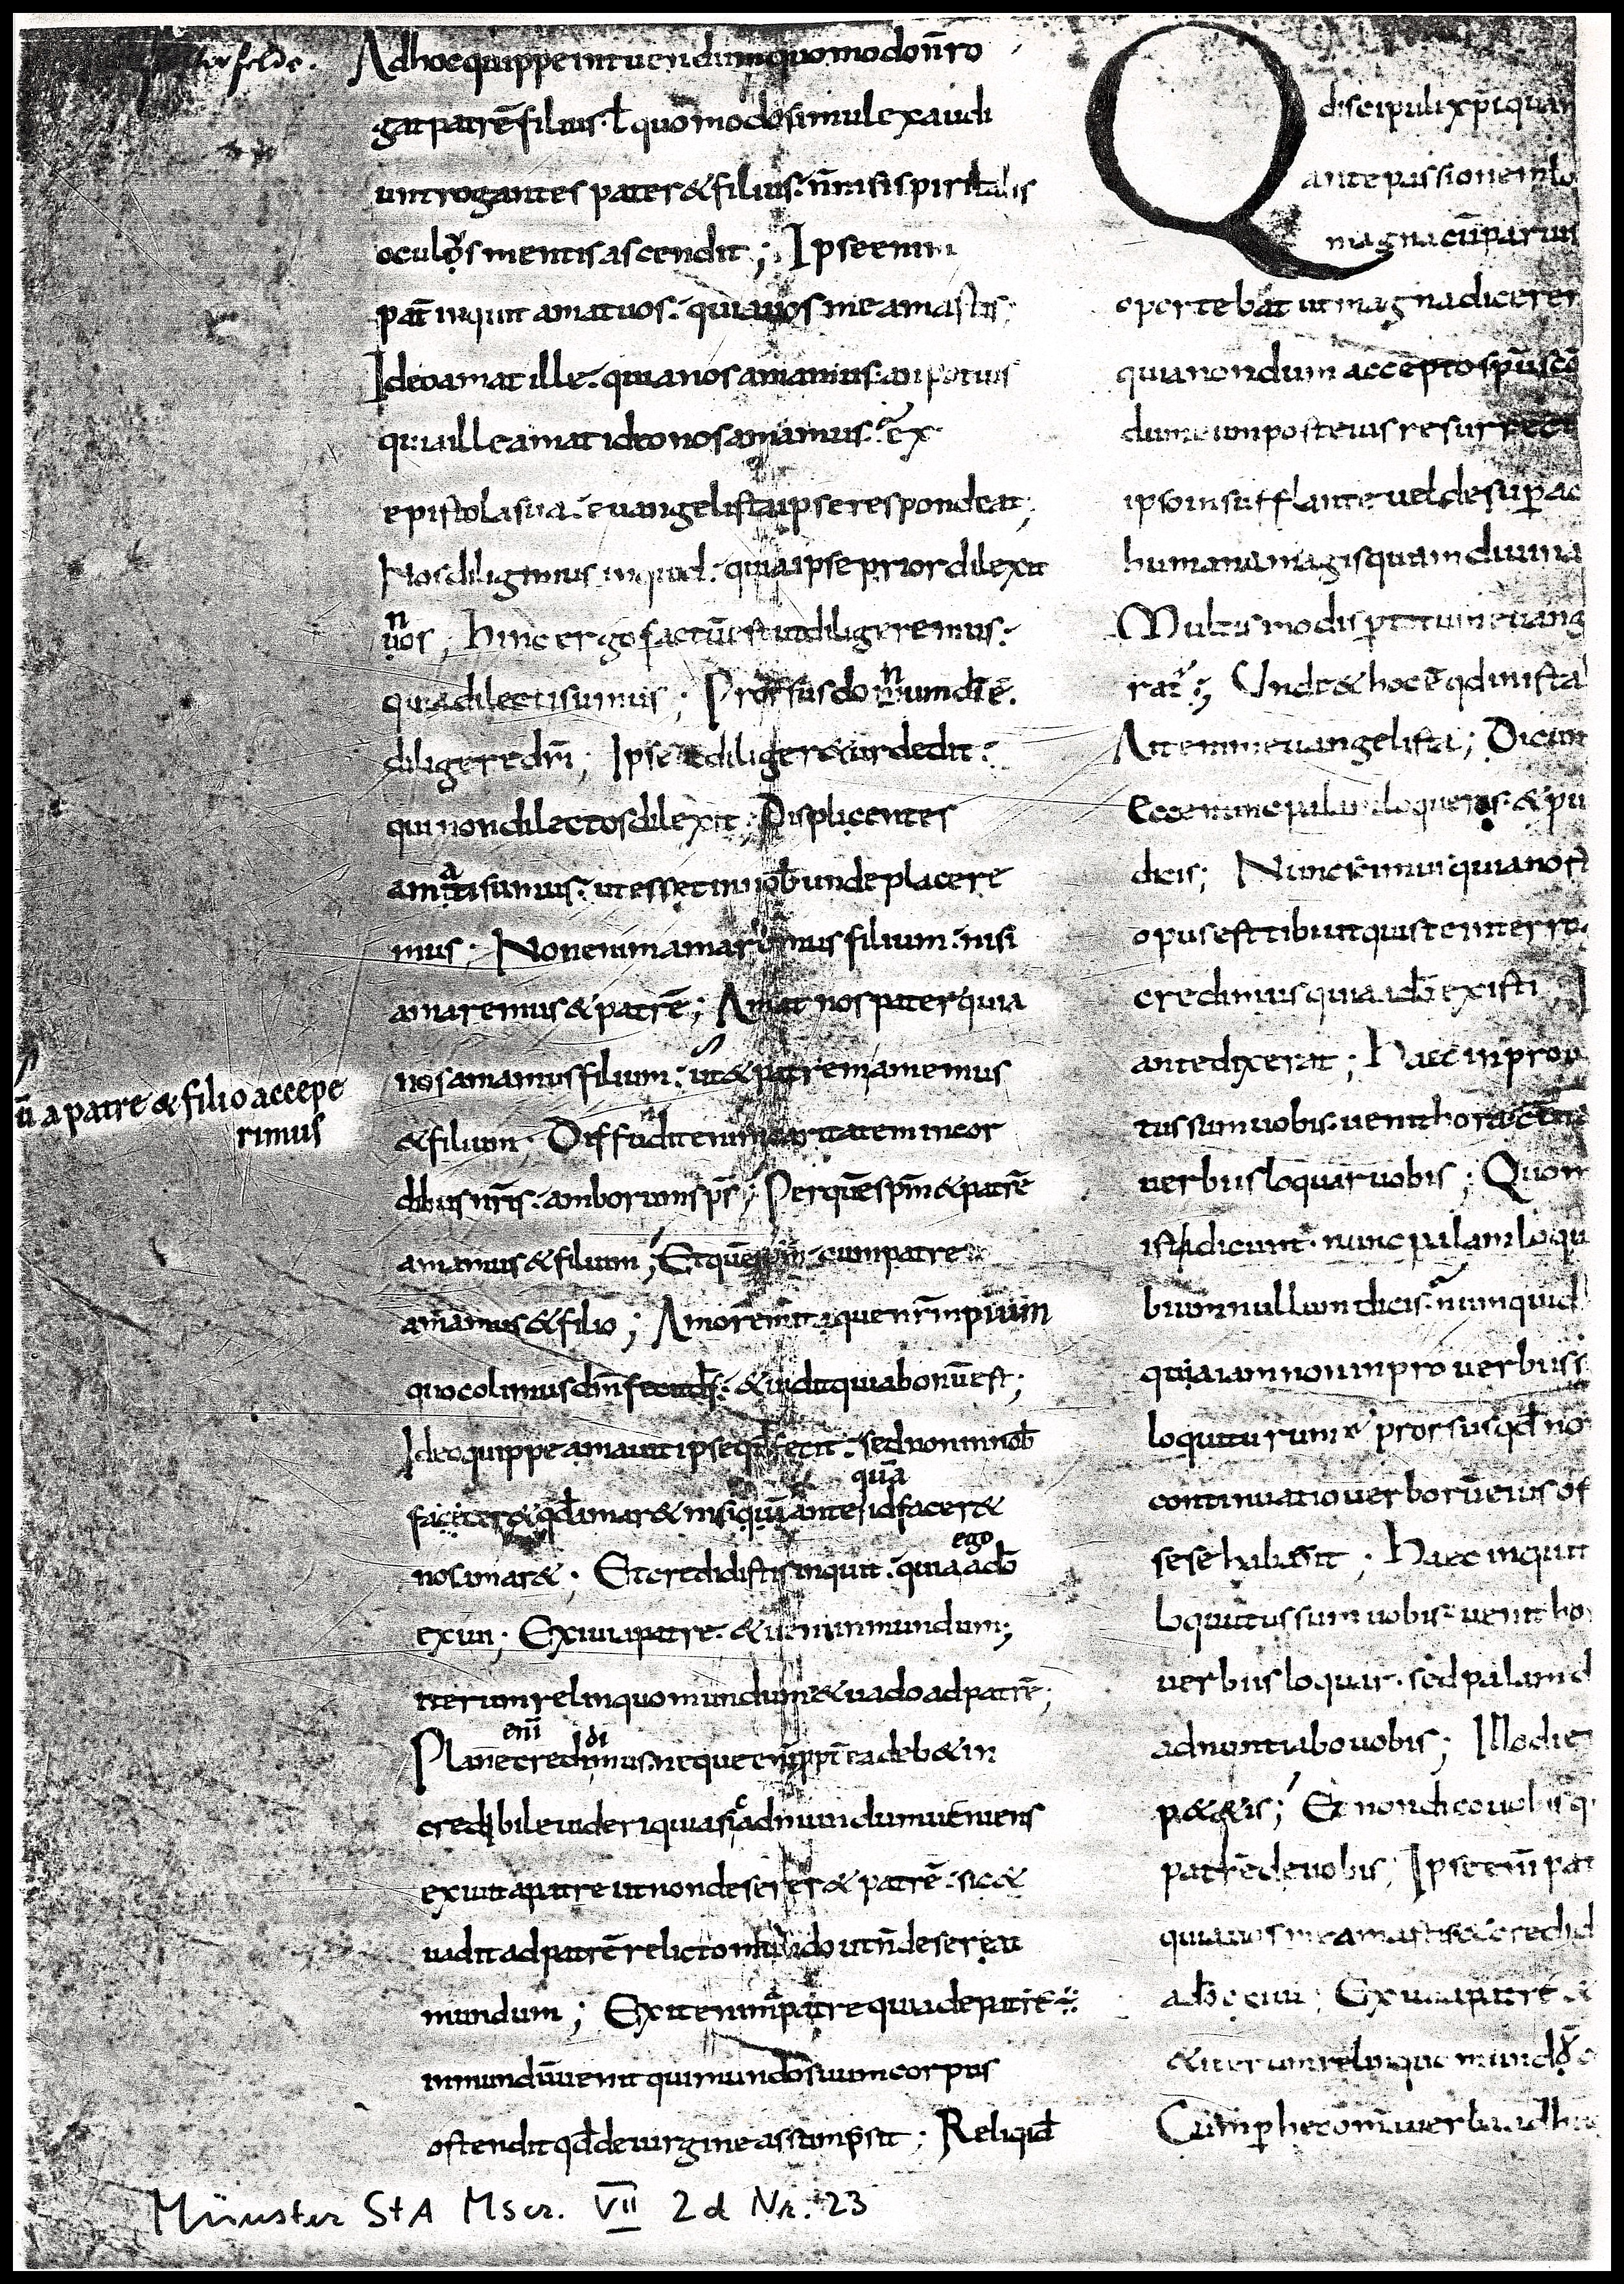 terfelde.
Ad hoc quippe intuendum quomodo n̄ ro
gat patrē filius. ł quomodo simul exaudi
unt rogantes pater & filius: n̄ nisi spiritalis
oculus mentis ascendit; Ipse enim
pat̄ inquit amat uos: quia uos me amastis;
Ideo amat ille. quia nos amamus: an potius
quia ille amat ideo nos amamus: ex
epistola sua euangelista ipse respondeat;
Nos diligimus inquid: quia ipse prior dilexit
nos; hinc ergo factū est ut diligeremus:
quia dilecti sumus; Prorsus donum dī ē.
diligere dm̄; Ipse ut diliger& ur dedit:
qui non dilectos dilexit; Displicentes
amati sumus: ut esset in nob̄ unde placere
mus; Non enim amaremus filium: nisi
amaremus & patrē; Amat nos pater quia
nos amamus filium: ut & patrem amemus
ū a patre & filio accepe
rimus
& filium. Diffudit enim caritatem in cor
dibus nr̄is: amborum sp̄s; Per quē sp̄m & patrē
amamus & filium; Et quē sp̄m cum patre
amamus & filio; Amorem itaque nr̄m pium
quo colimus dm̄ fecit ds̄: & uidit quia bonū est;
Ideo quippe amauit ipse qd̄ fecit: sed non in nob̄
facer& qd̄ amar& nisi quia ante quā id facer&
nos amar&. Et credidistis inquit: quia ego a dō
exiui; Exiui a patre: & ueni in mundum;
iterum relinquo mundum & uado ad patrē;
Plane credimus neque enim ppt̄ea deb& in
credibile uideri quia sic ad mundum ueniens
exiuit a patre ut non deserer& patrē: sic &
uadit ad patrē relicto mundo ut n̄ deserat
mundum; Exit enim a patre quia de patre ē:
in mundū uenit qui mundo suum corpus
ostendit qd̄ de uirgine assumpsit; Reliqid̄
Q
discipuli xp̄i quan
ante passionem lo
magna cū paruis
oportebat ut magna dicerer
quia nondum accepto sp̄u scō
dum eum post eius resurrect
ipso insufflante uel desup̄ ac
humana magis quam diuina
Multis modis p̄ totum euang
rat̄; Unde & hoc ē qd̄ in ista
Ait enim euangelista; Dicunt
Ecce nunc palam loqueris & pu
dicis; Nunc scimus quia nost
opus est tibi ut quis te interro
credimus quia a dō existi;
ante dixerat; Haec in prou
tus sum uobis. uenit hora cū
uerbiis loquar uobis; Quom
isti dicunt. nunc palam loqu
bium nullum dicis: numquid
quia iam non in prouerbiis
loquiturum prorsus qd̄ no
continuatio uerborū eius os
sese habuit; Haec inquit
loquutus sum uobis: uenit ho
uerbiis loquar. sed palam d
adnuntiabo uobis; Illo die
p&&is; Et non dico uobis q
patrē de uobis; Ipse enī pat
quia uos me amastis & credid
a dō exiui; Exiui a patre &
& iterum relinquo mundū
Cum p̄ hec omnia uerba
Münster StA Mscr. VII 2d Nr. 23